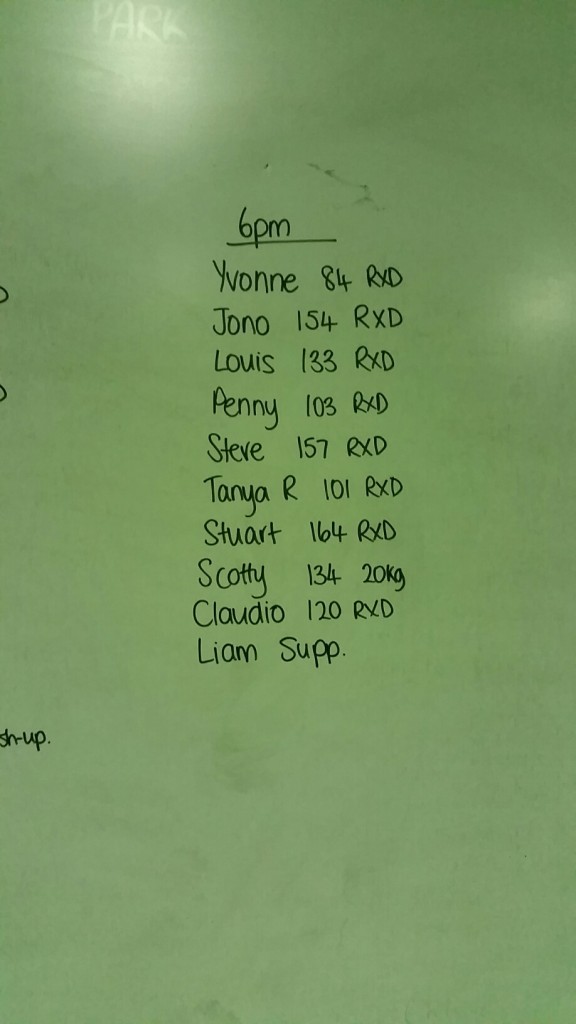 PARK
6pm
Yvonne 84 RXD
Jono 154 RXD
Louis 133 RXD
Penny 103 RXD
Steve 157 RXD
Tanya R 101 RXD
Stuart 164 RXD
Scotty 134 20kg
Claudio 120 RXD
Liam Supp.
sh-up.